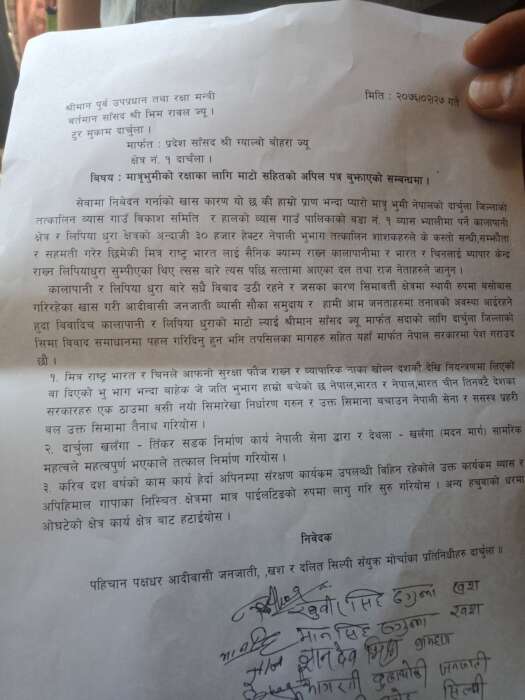 मिति : २०७६।०२।२७ गते
श्रीमान पुर्व उपप्रधान तथा रक्षा मन्त्री
बर्तमान साँसद श्री भिम रावल ज्यू ।
टुर मुकाम दार्चुला ।
मार्फत : प्रदेश साँसद श्री ग्याल्बो बोहरा ज्यू
क्षेत्र नं. १ दार्चुला ।
बिषय : मात्रुभुमीको रक्षाका लागि माटो सहितको अपिल पत्र बुझाएको सम्बन्धमा ।
सेवामा निबेदन गर्नाको खास कारण यो छ की हाम्रो प्राण भन्दा प्यारो मात्रृ भुमी नेपालको दार्चुला जिल्लाको
तत्कालिन ब्यास गाउँ बिकाश समिति र हालको ब्यास गाउँ पालिकाको बडा नं. १ ब्यास भ्यालीमा पर्ने कालापानी
क्षेत्र र लिपिया धुरा क्षेत्रको अन्दाजी ३० हजार हेक्टर नेपाली भुभाग तत्कालिन शाशकहरुले के कस्तो सन्धी,सम्झौता
र सहमती गरेर छिमेकी मित्र राष्ट्र भारत लाई सैनिक क्याम्प राख्न कालापानीमा र भारत र चिनलाई ब्यापार केन्द्र
राख्न लिपियाधुरा सुम्पीएका थिए त्यस बारे त्यस पछि सत्तामा आएका दल तथा राज नेताहरुले जानुन ।
कालापानी र लिपिया धुरा बारे सधै बिबाद उठी रहने र जसका कारण सिमावर्ती क्षेत्रमा स्थायी रुपमा बसोबास
गरिरहेका खास गरी आदीवासी जनजाती ब्यासी सौका समुदाय र हामी आम जनताहरुमा तनावको अवस्था आईरहने
हुदा बिबादिच कालापानी र लिपिया धुराको माटो ल्याई श्रीमान साँसद ज्यू मार्फत सदाको लागि दार्चुला जिल्लाको
सिमा बिवाद समाधानमा पहल गरिदिनु हुन भनि तपसिलका मागहरु सहित यहाँ मार्फत नेपाल सरकारमा पेश गराउद
छौ ।
१. मित्र राष्ट्र भारत र चिनले आफनो सुरक्षा फौज राख्न र ब्यापारिक नाका खोल्न दशकौ देखि नियन्त्रणमा लिएको
बा दिएको भु भाग भन्दा बाहेक जे जति भुभाग हाम्रो बचेको छ नेपाल,भारत र नेपाल,भारत चीन तिनवटै देशका
सरकारहरु एक ठाउमा बसी नयाँ सिमारेखा निर्धारण गरुन र उक्त सिमाना बचाउन नेपाली सेना र ससस्त्र प्रहरी
बल उक्त सिमामा तैनाथ गरियोस ।
२. दार्चुला खलंगा - तिंकर सडक निर्माण कार्य नेपाली सेना द्वारा र देथला - खलंगा (मदन मार्ग) सामरिक
महत्वले महत्वपुर्ण भएकाले तत्काल निर्माण गरियोस ।
३. करिब दश वर्षको काम कार्य हेर्दा अपिनम्पा संरक्षण कार्यकम उपलब्धी बिहिन रहेकोले उक्त कार्यकम ब्यास र
अपिहिमाल गापाका निस्चित क्षेत्रमा मात्र पाईलटिङको रुपमा लागु गरि सुरु गरियोस । अन्य हचुवाको भरमा
ओघटेको क्षेत्र कार्य क्षेत्र बाट हटाईयोस ।
निवेदक
पहिचान पक्षधर आदीवासी जनजाती, ,खश र दलित सिल्पी संयुक्त मोर्चाका प्रतिनिधीहरु दार्चुला ॥
सिंह ठगुन्ना खश
मान सिंह ठगुन्ना खश
जनजाती
सिल्पी